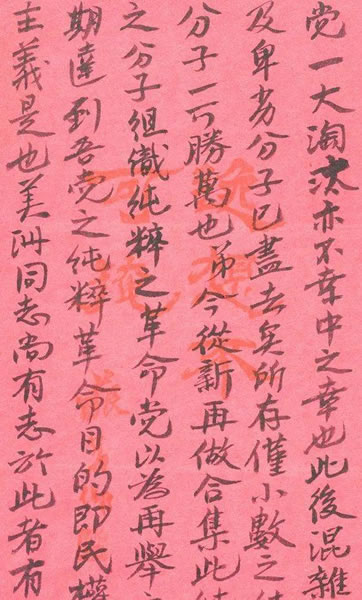 党一大淘汰亦不幸中之幸也此後混雜
及卑劣分子已盡去矣所存僅小數之
分子一可勝萬也弟今從新再做合集此
之分子組織純粹之革命党以為再舉之
期達到吾党之純粹革命目的即民權
主義是也美洲同志尚有志於此者有